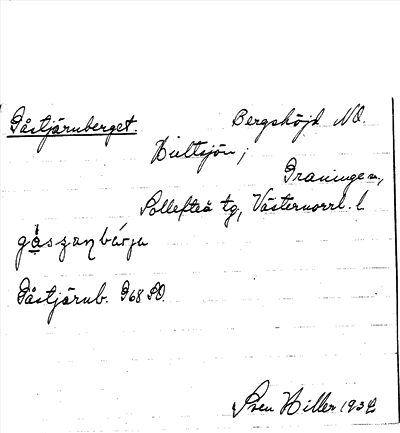 Gåstjärnberget. Bergshöjd NO.
Hultsjön,
Graningen,
Sollefteå tg, Västernorrl. l
gå̱szanbárja
Gåstjärnb. G68 SO.
Sven Hiller 1932